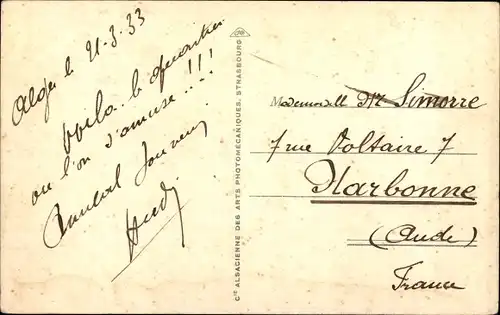 Alger le 21-3-33
Voila le quartier
ou l'on s'amuse...!!!
Amical Souvenir
Cie ALSACIENNE DES ARTS PHOTOMÉCANIQUES, STRASBOURG
Mademoiselle Simorre
7 rue Voltaire 7
Narbonne
(Aude)
France